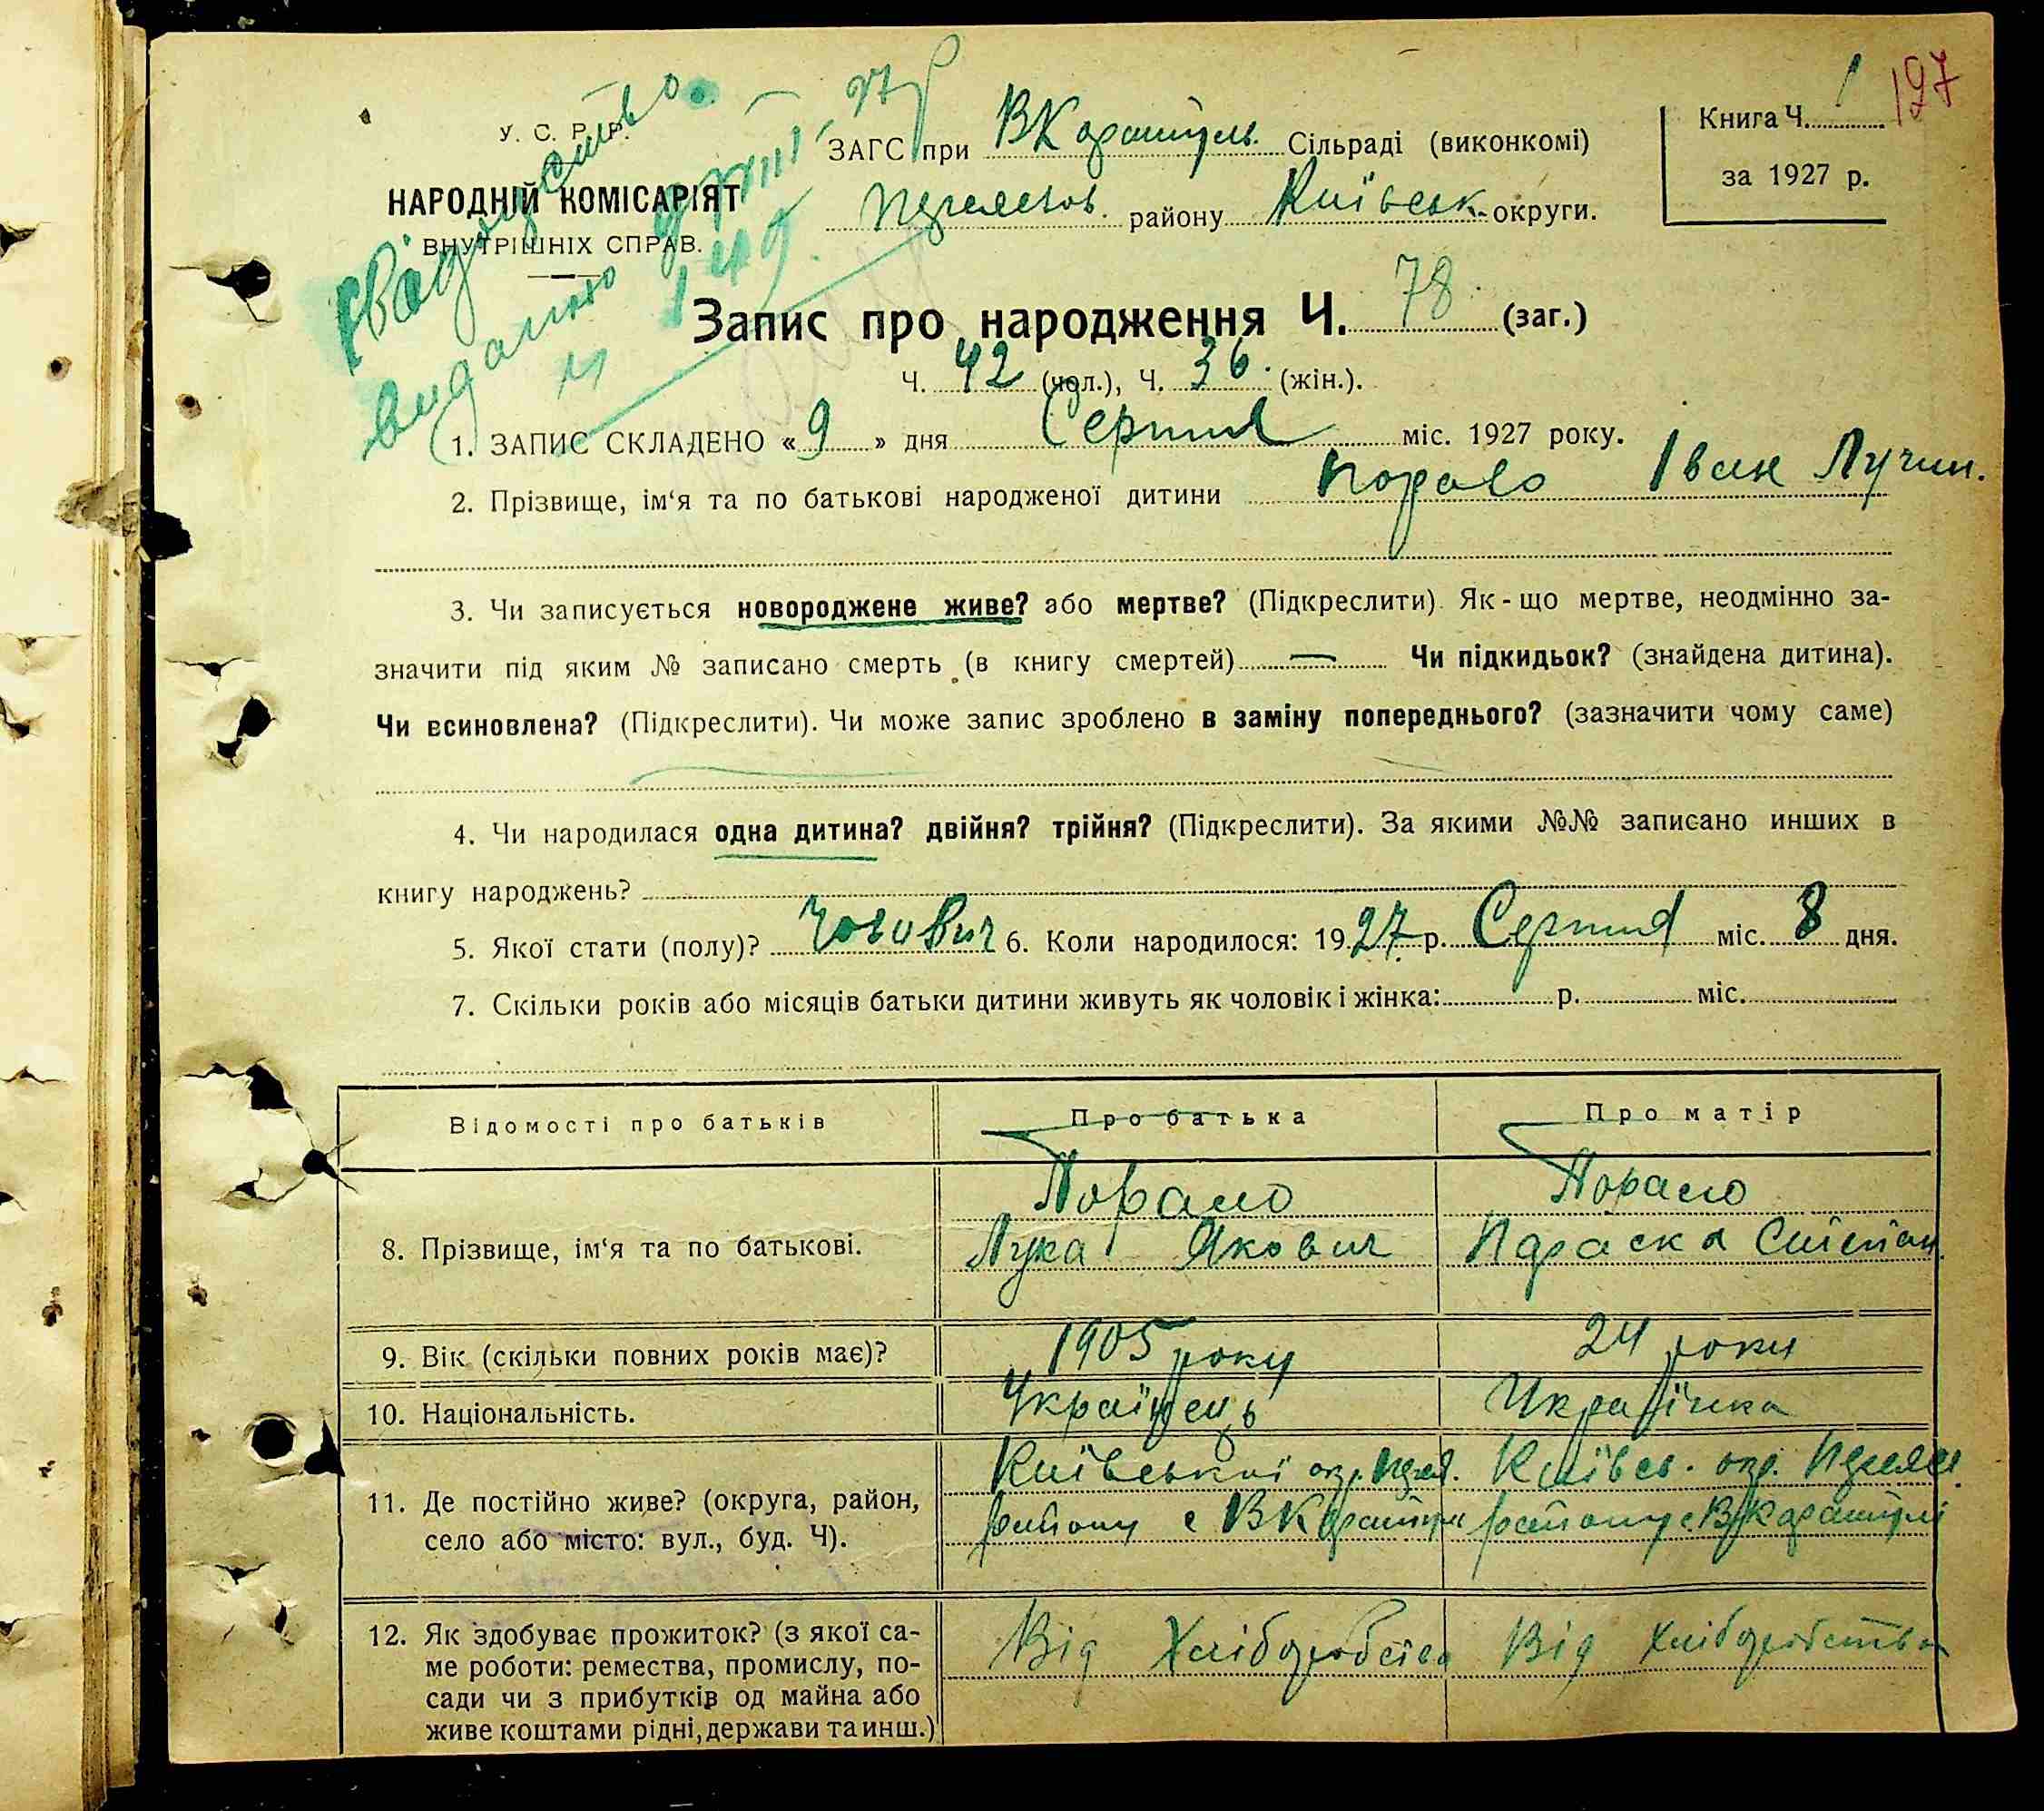 197
У. С. Р. Р.
НАРОДНІЙ КОМІСАРІЯТ
ВНУТРІШНІХ СПРАВ.
Свідоцтво
видано
149
ЗАГС при ВКаратуль. Сільраді (виконкомі)
Переяслов. району Київськ. округи.
Книга Ч. 1
за 1927 р.
Запис про народження Ч. 78 (заг.)
Ч. 42 (чол.), Ч. 36. (жін.).
1. ЗАПИС СКЛАДЕНО «9» дня Серпня міс. 1927 року.
2. Прізвище, ім‘я та по батькові народженої дитини Порало Іван Лучич.
3. Чи записується новороджене живе? або мертве? (Підкреслити). Як-що мертве, неодмінно за-
значити під яким № записано смерть (в книгу смертей) — Чи підкидьок? (знайдена дитина).
Чи всиновлена? (Підкреслити). Чи може запис зроблено в заміну попереднього? (зазначити чому саме)
4. Чи народилася одна дитина? двійня? трійня? (Підкреслити). За якими №№ записано инших в
книгу народжень?
5. Якої стати (полу)? Чоловіч 6. Коли народилося: 1927 р. Серпня міс. 8 дня.
7. Скільки років або місяців батьки дитини живуть як чоловік і жінка: р. міс.
Відомості про батьків Про батька Про матір
8. Прізвище, ім‘я та по батькові. Порало Лука Якович Порало Параска Степан.
9. Вік (скільки повних років має)? 1905 року 24 роки
10. Національність. Українець Українка
11. Де постійно живе? (округа, район,
село або місто: вул., буд. Ч).
Київської окр. Перея.
району с ВКаратули
Київсь. окр. Переясл.
району с ВКаратулі
12. Як здобуває прожиток? (з якої са-
ме роботи: ремества, промислу, по-
сади чи з прибутків од майна або
живе коштами рідні, держави та инш.)
Від Хліборобства
Від хліборобства